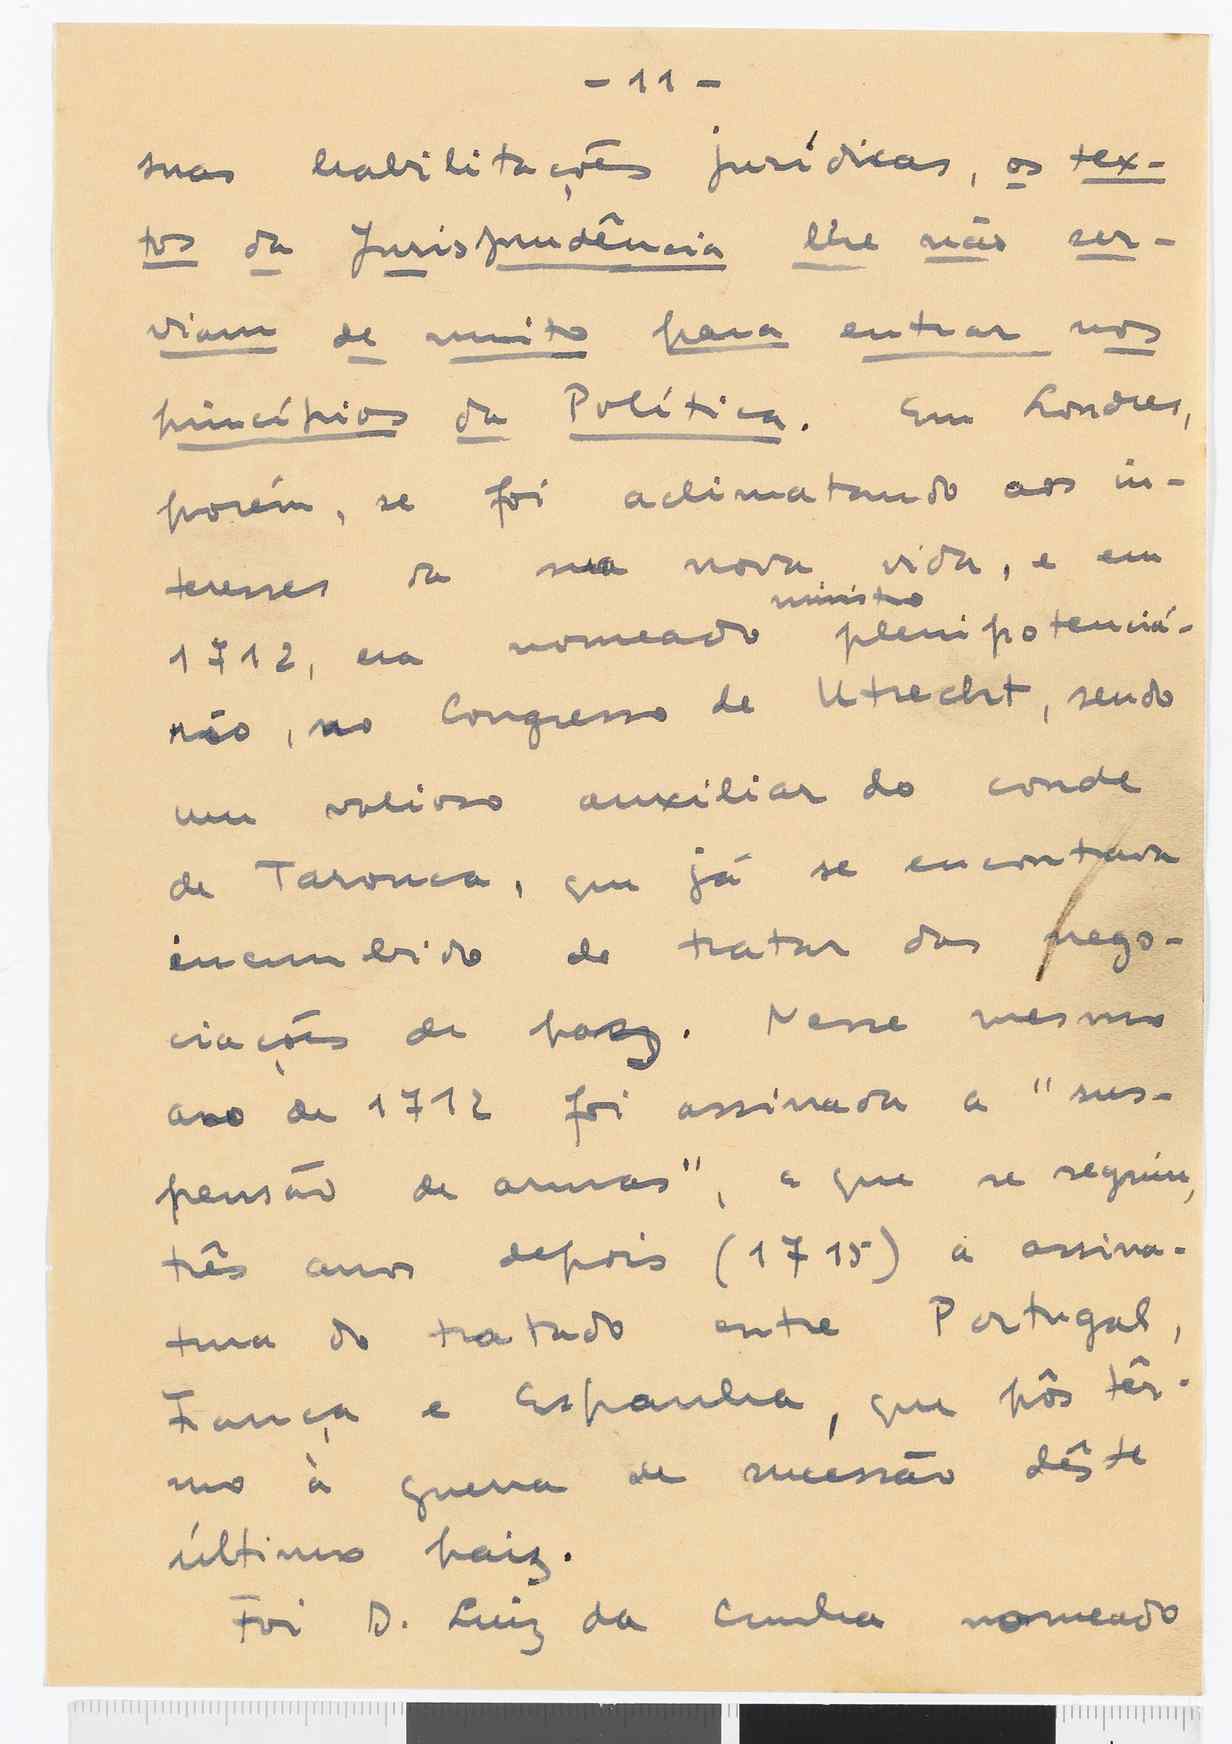 - 11 -
suas habilitações jurídicas, os tex-
tos da Jurisprudência lhe não ser-
viam de muito para entrar nos
princípios da Política. Em Londres,
porém, se foi aclimatando aos in-
teresses da sua nova vida, e em
ministro
1712, era nomeado plenipotenciá-
rio, no Congresso de Utrecht, sendo
um valioso auxiliar do conde
de Tarouca, que já se encontrava
incumbido de tratar das nego-
ciações de paz. Nesse mesmo
ano de 1712 foi assinada a "sus-
pensão de armas", a que se seguiu,
três anos depois (1715) a assina-
tura do tratado entre Portugal,
França e Espanha, que pôs têr-
mo à guerra de sucessão dêste
último paiz.
Foi D. Luiz da Cunha nomeado